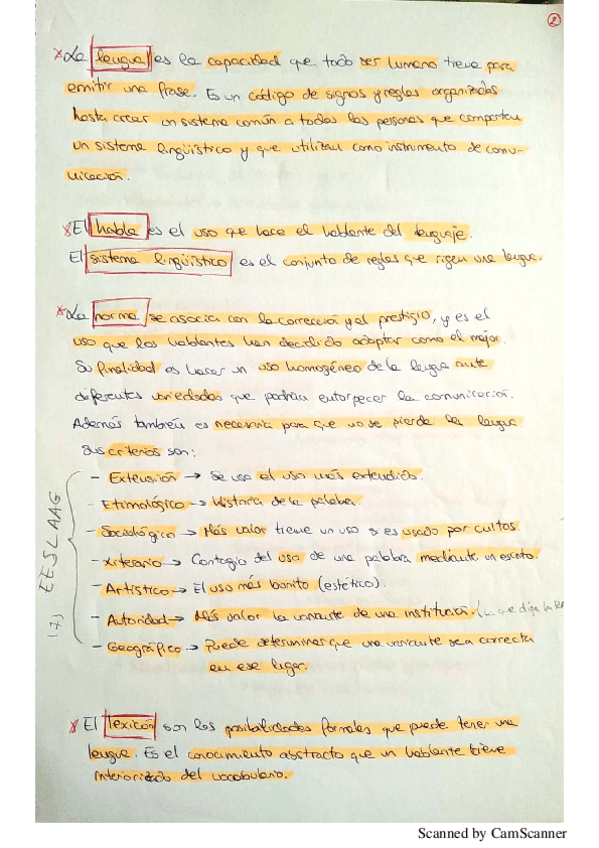 2
*La lengua es la capacidad que todo ser humano tiene para
emitir una frase. Es un código de signos y reglas organizados
hasta crear un sistema común a todas las personas que comparten
un sistema lingüístico y que utilizan como instrumento de comu-
nicación.
*El habla es el uso que hace el hablante del lenguaje.
El sistema lingüístico es el conjunto de reglas que rigen una lengua.
*La norma se asocia con la corrección y al prestigio, y es el
uso que los hablantes han decidido adoptar como el mejor.
Su finalidad es hacer un uso homogéneo de la lengua ante
diferentes variedades que podrían entorpecer la comunicación.
Además también es necesaria para que no se pierda la lengua.
Sus criterios son:
- Extensión → Se usa el uso más extendido.
- Etimológico → Historia de la palabra.
- Sociológico → Más valor tiene un uso si es usado por cultos.
- → Contagio del uso de una palabra mediante un escrito.
- Artístico → El uso más bonito (estético).
- Autoridad → Más valor la variante de una institución. (Lo que diga la RA
- Geográfico → Puede determinar que una variante sea correcta
en ese lugar.
(7) EESLAAG
* El lexicón son las posibilidades formales que puede tener una
lengua. Es el conocimiento abstracto que un hablante tiene
interiorizado del vocabulario.
Scanned by CamScanner